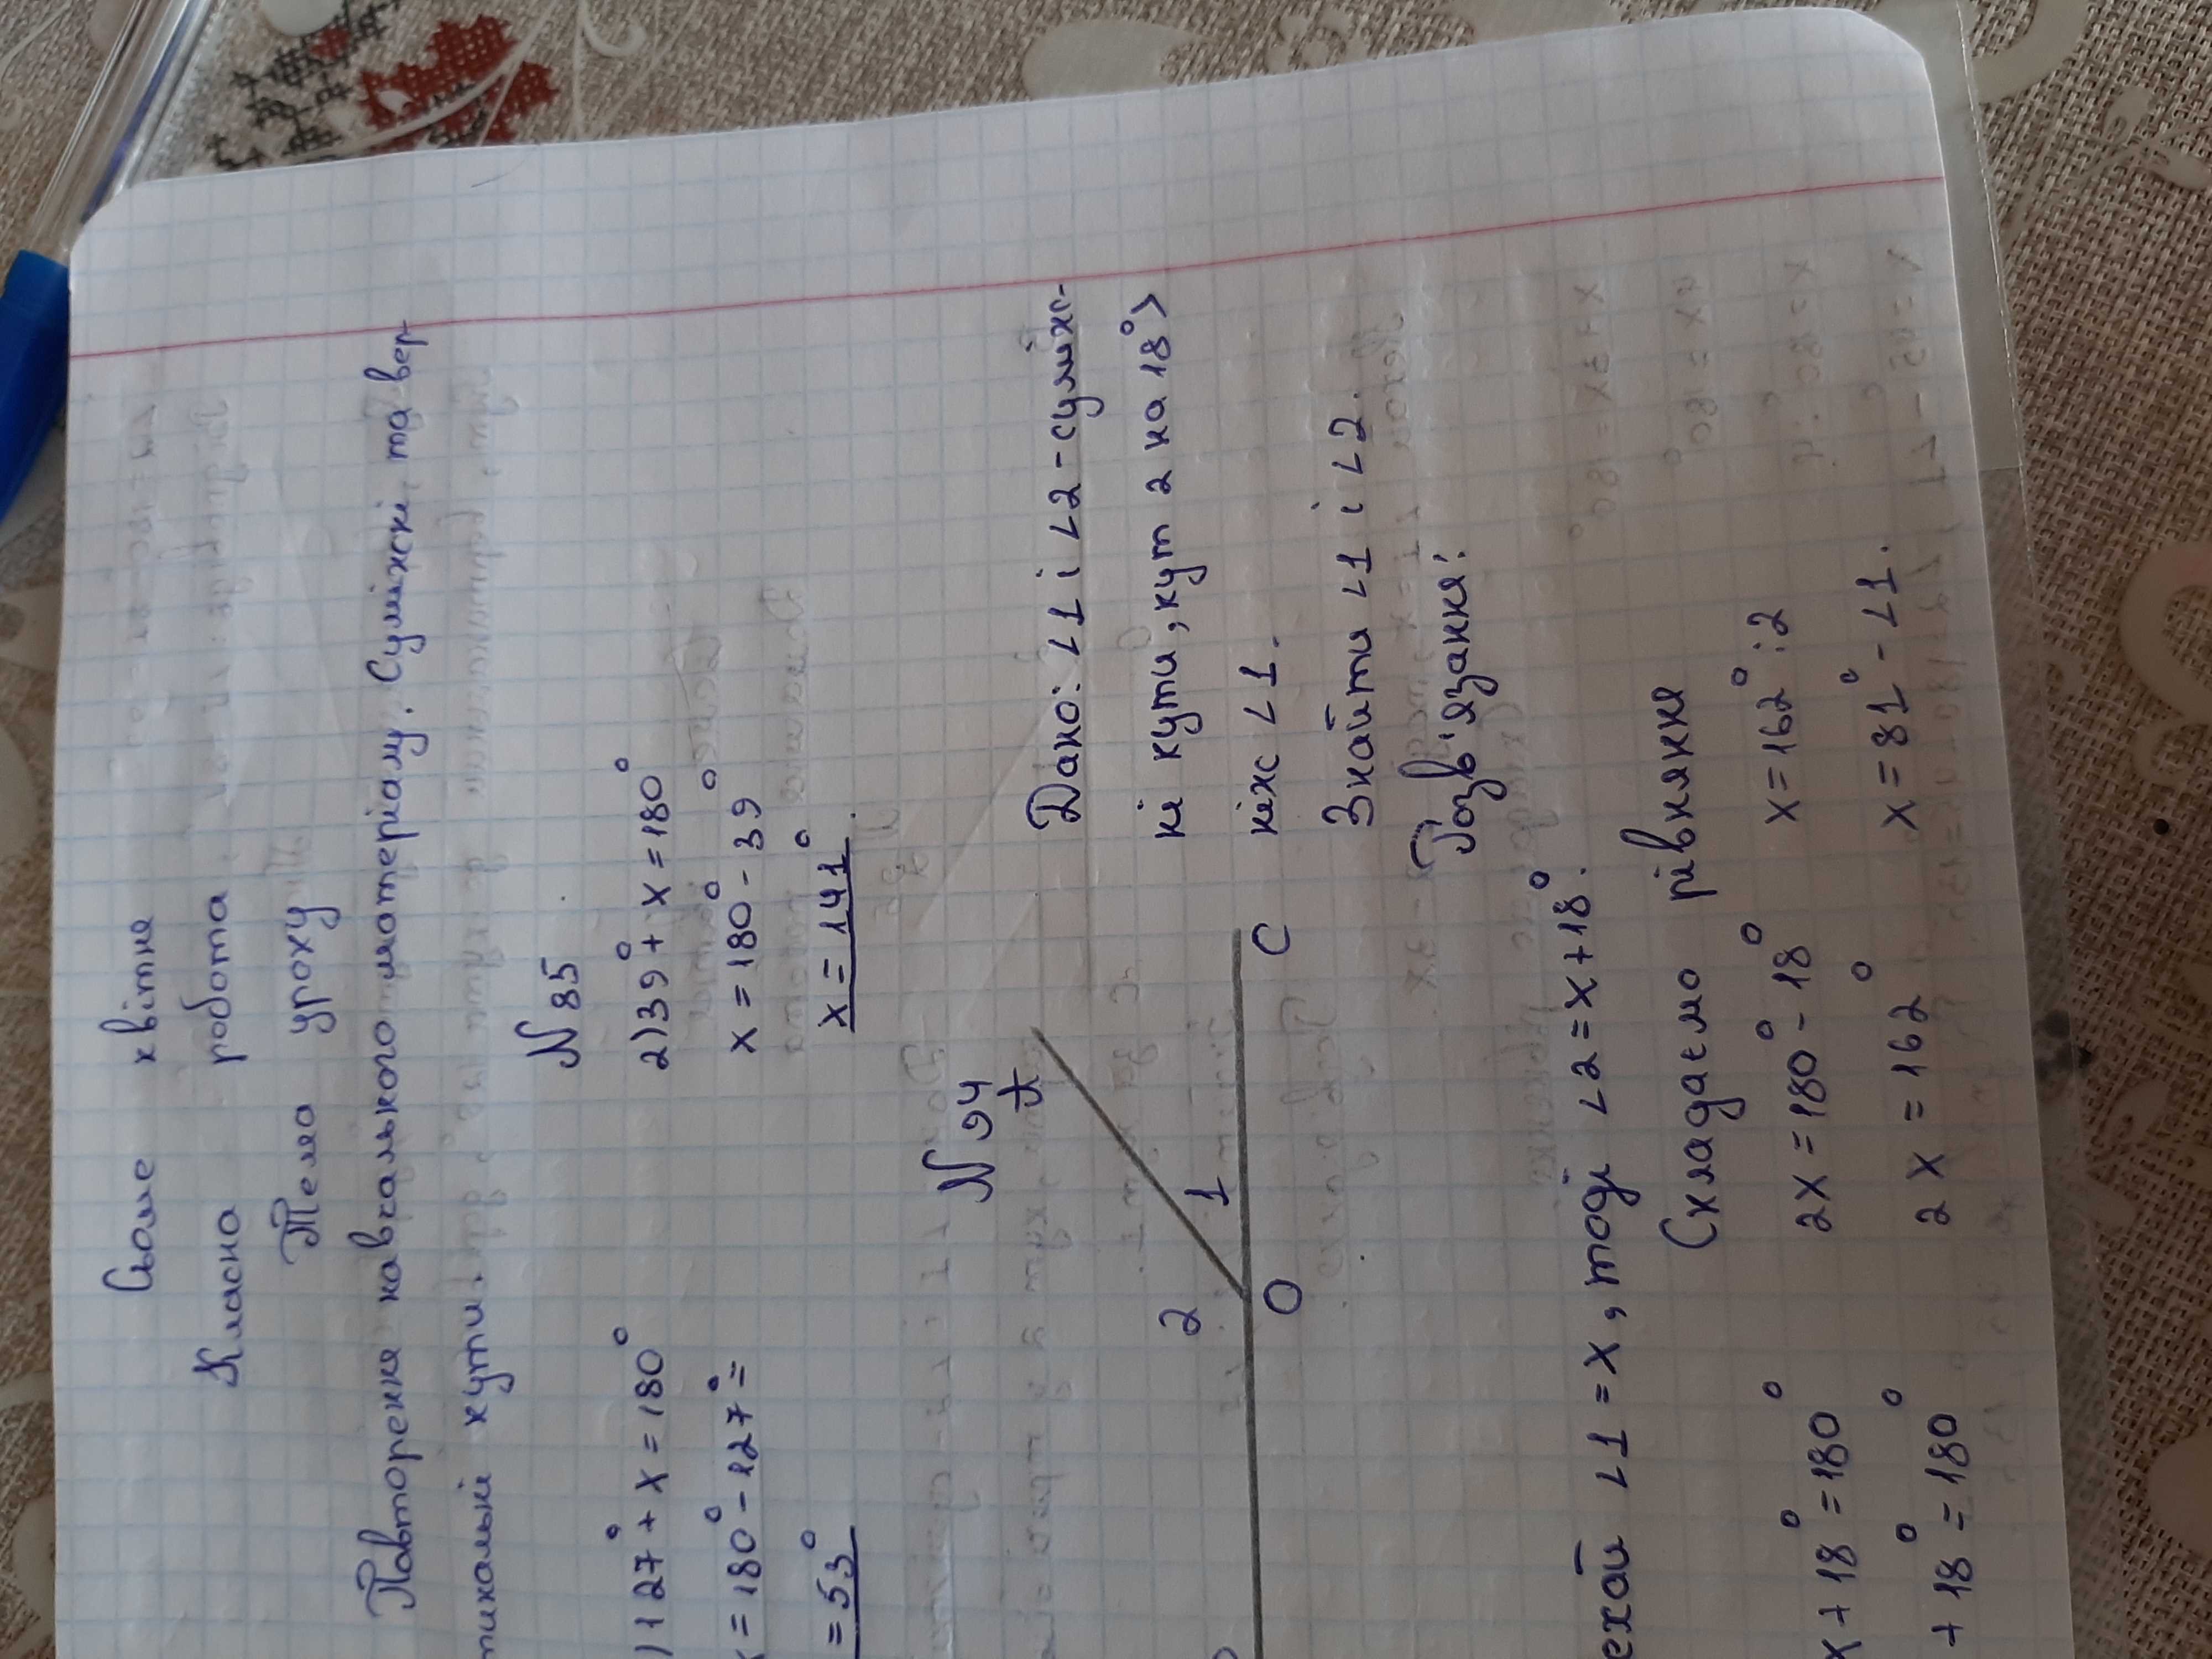 Сьоме квітня
Класна робота
Тема уроку
Повторення навчального матеріалу. Суміжні та вер-
тикальні кути.
N85
)127°+x=180° 2)39°+x=180°
x=180°-127°= x=180°-39°
=53° x=141°.
N94
Дано: ∠1 і ∠2-суміж-
ні кути, кут 2 на 18°>
ніж ∠1.
Знайти ∠1 і ∠2.
2 1
O C
Розв'язання:
ехай ∠1=x, тоді ∠2=x+18°.
Складаємо рівняння
x+18°=180° 2x=180°-18° x=162°:2
+18°=180° 2x=162° x=81°-∠1.